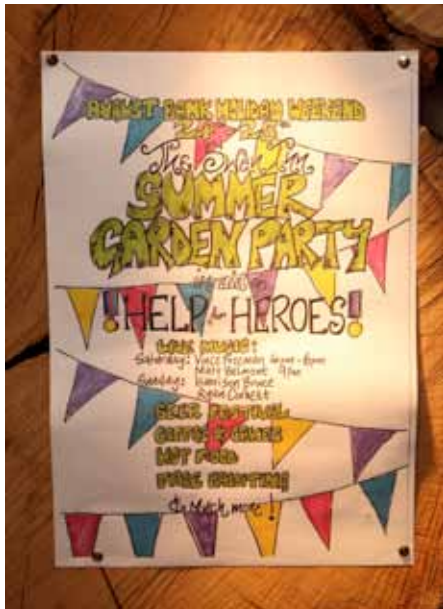 AUGUST BANK HOLIDAY WEEKEND
The Swan
SUMMER
GARDEN PARTY
in aid of
!HELP for HEROES!
LIVE MUSIC!
Saturday: Vince Freeman
Matt Belmont 9pm
Sunday: Harrison Bruce
Ryan Corbett
BEER FESTIVAL
GAMES
HOT FOOD
FACE PAINTING
& Much more!